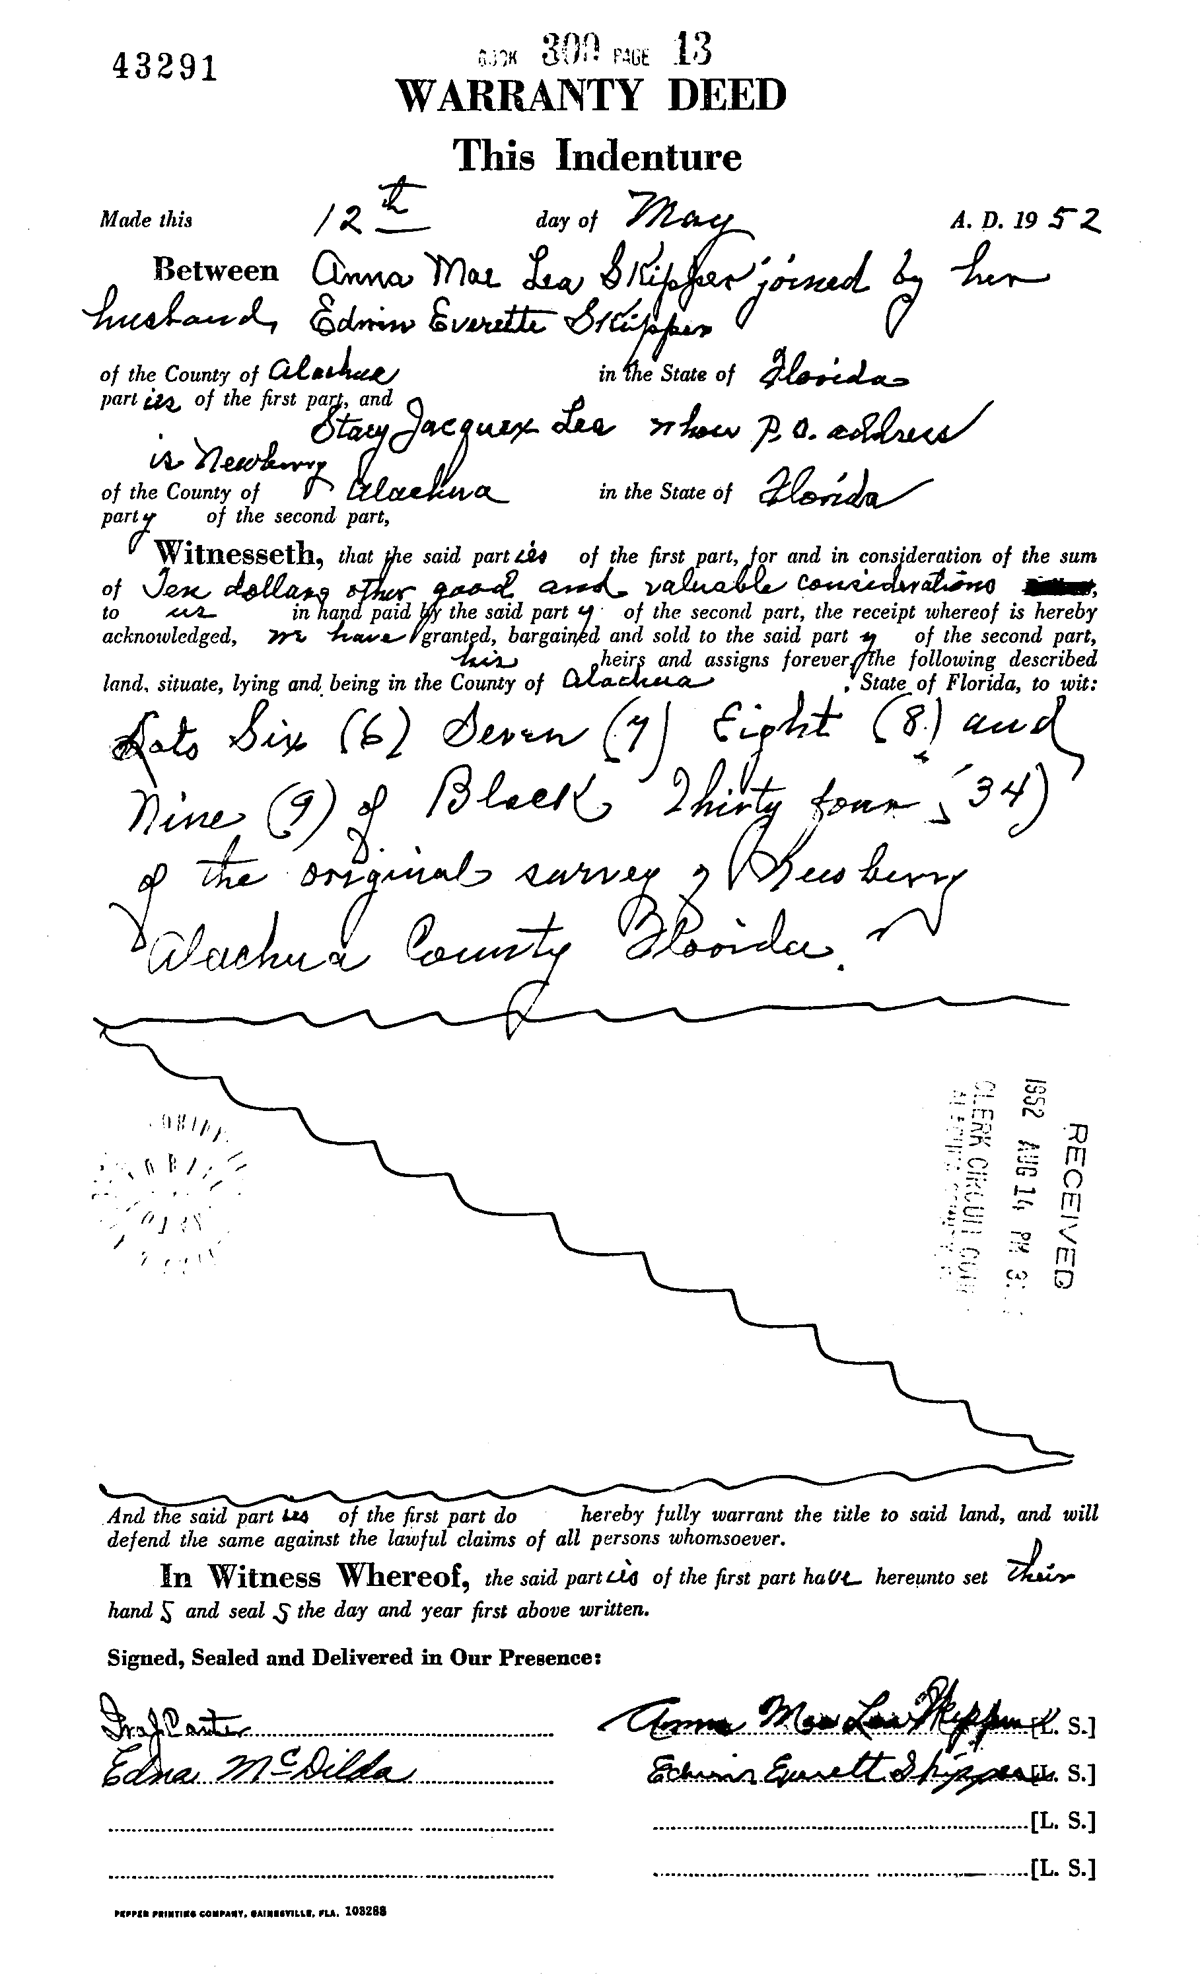 43291
BOOK 300 PAGE 13
WARRANTY DEED
This Indenture
Made this 12th day of May A. D. 1952
Between Anna Mae Lea Skipper joined by her
husband, Edwin Everette Skipper
of the County of Alachua in the State of Florida
parties of the first part, and
Stacy Jacquex Lea whose P.O. address
is Newberry
of the County of Alachua in the State of Florida
party of the second part,
Witnesseth, that the said parties of the first part, for and in consideration of the sum
of Ten dollars other good and valuable considerations
to us in hand paid by the said party of the second part, the receipt whereof is hereby
acknowledged, we have granted, bargained and sold to the said party of the second part,
his heirs and assigns forever, the following described
land, situate, lying and being in the County of Alachua, State of Florida, to wit:
Lots Six (6) Seven (7) Eight (8) and
Nine (9) of Block Thirty four (34)
of the original survey of Newberry
Alachua County Florida.
RECEIVED
1952 AUG 14 PM 3
CLERK CIRCUIT
And the said parties of the first part do hereby fully warrant the title to said land, and will
defend the same against the lawful claims of all persons whomsoever.
In Witness Whereof, the said parties of the first part have hereunto set their
hand S and seal S the day and year first above written.
Signed, Sealed and Delivered in Our Presence:
Ira J. Carter Anna Mae Lea Skipper [L. S.]
Edna McDilda Edwin Everett Skipper [L. S.]
[L. S.]
[L. S.]
PEPPER PRINTING COMPANY, GAINESVILLE, FLA. 103288